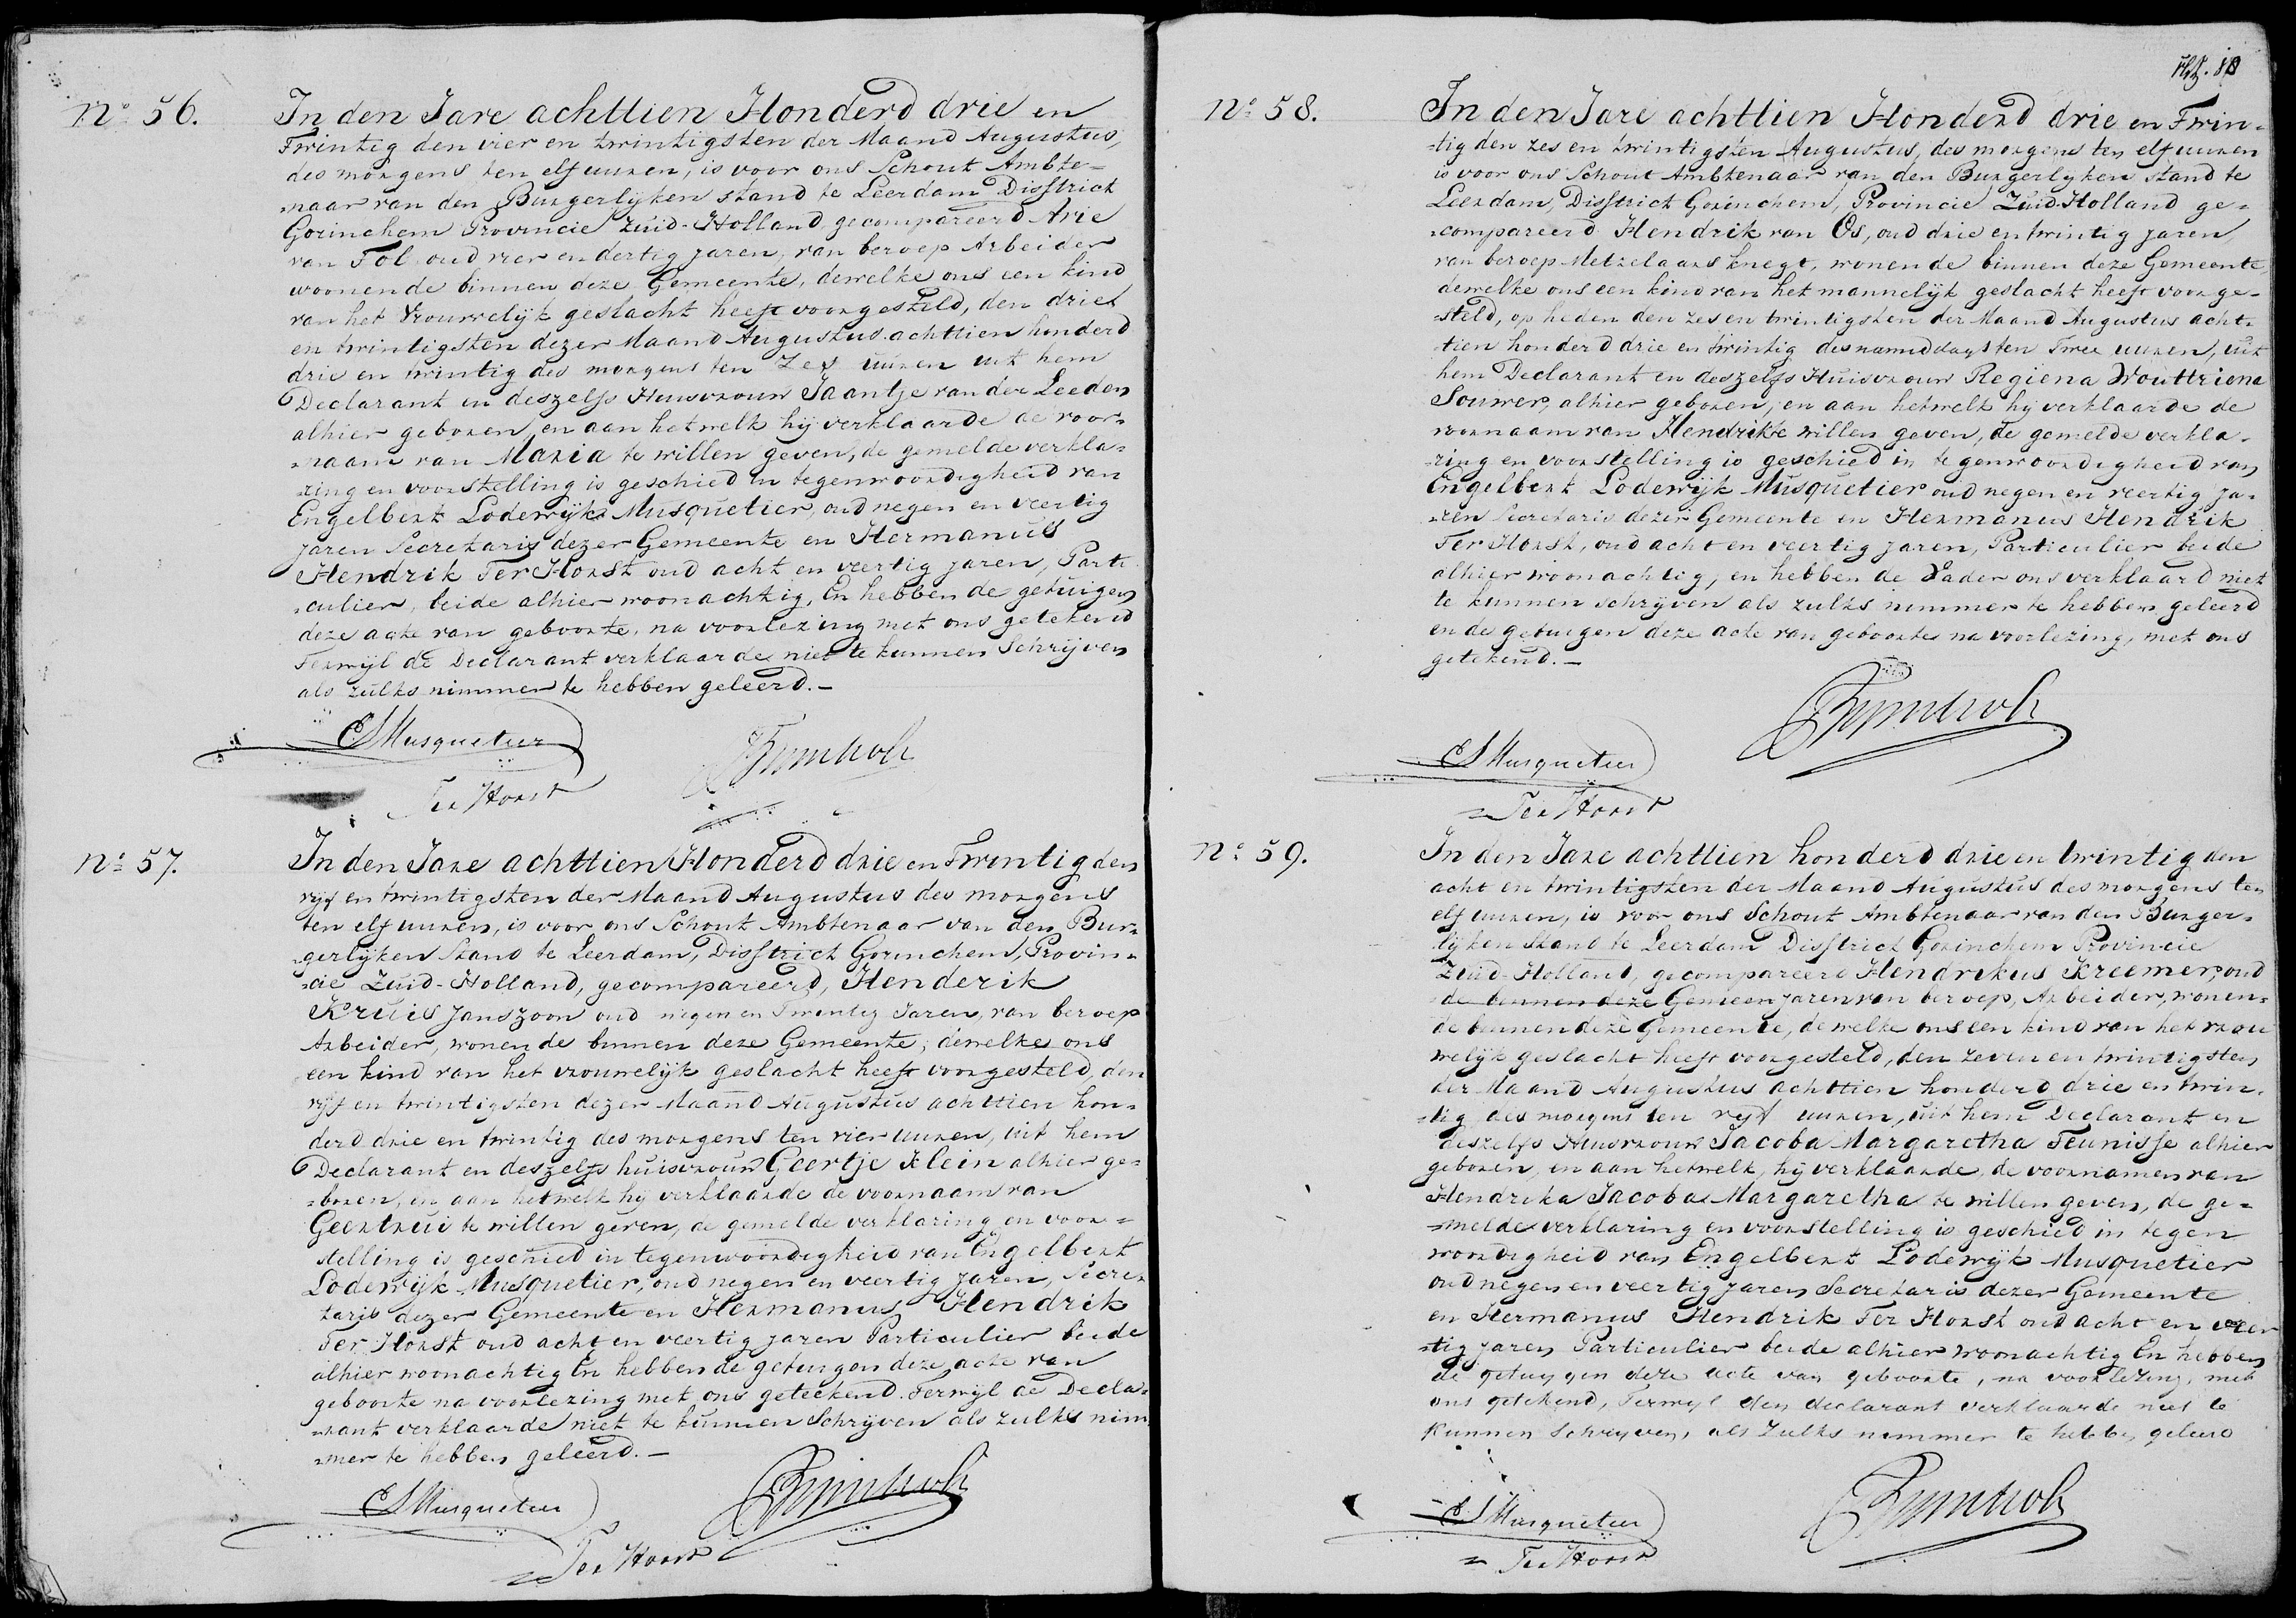 No. 56.
In den Jare achttien Honderd drie en
Twintig den vier en twintigsten der Maand Augustus,
des morgens ten elf uuren, is voor ons Schout Ambte-
naar van den Burgerlyken stand te Leerdam Disstrict
Gorinchem Provincie Zuid-Holland gecompareerd Arie
van Tol oud vier en dertig jaren, van beroep Arbeider
woonende binnen deze Gemeente, dewelke ons een kind
van het vrouwelyk geslacht heeft voorgesteld, den drie
en twintigsten dezer Maand Augustus achttien honderd
drie en twintig des morgens ten Zes uuren uit hem
Declarant en deszelfs Huisvrouw Jaantje van der Leeden
alhier geboren, en aan hetwelk hij verklaarde de voor-
naam van Maria te willen geven, de gemelde verkla-
ring en voorstelling is geschied in tegenwoordigheid van
Engelbert Lodewyk Musquetier, oud negen en veertig
jaren Secretaris dezer Gemeente en Hermanus
Hendrik Ter Horst oud acht en veertig jaren, Parti
culier, beide alhier woonachtig, En hebben de getuigen
deze acte van geboorte, na voorlezing met ons getekend
Terwijl de Declarant verklaarde niet te kunnen Schrijven
als zulks nimmer te hebben geleerd.-
EL Musquetier
Ter Horst
No. 57.
In den Jare achttien Honderd drie en Twintig den
vijf en twintigsten der Maand Augustus des morgens
ten elf uuren, is voor ons Schout Ambtenaar van den Bur-
gerlijken Stand te Leerdam, Disstrict Gorinchem, Provin-
cie Zuid-Holland, gecompareerd, Henderik
Kruis Janszoon oud negen en Twentig Jaren, van beroep
Arbeider, wonende binnen deze Gemeente, dewelke ons
een kind van het vrouwelijk geslacht heeft voorgesteld, den
vijf en twintigsten dezer Maand Augustus achttien hon-
derd drie en twintig des morgens ten vier uuren, uit hem
Declarant en deszelfs huisvrouw Geertje Klein alhier ge-
boren, en aan hetwelk hij verklaarde de voornaam van
Geertrui te willen geven, de gemelde verklaring en voor-
stelling is geschied in tegenwoordigheid van Engelbert
Lodewijk Musquetier, oud negen en veertig jaren, Secre-
taris dezer Gemeente en Hermanus Hendrik
Ter Horst oud acht en veertig jaren Particulier beide
alhier woonachtig En hebben de getuigen deze acte van
geboorte na voorlezing met ons geteekend. Terwijl de Decla-
rant verklaarde niet te kunnen Schrijven als zulks nim
mer te hebben geleerd.-
EL Musquetier
Ter Horst
No. 58.
In den Jare achttien Honderd drie en Twin-
tig den zes en twintigsten Augustus, des morgens ten elf uuren
is voor ons Schout Ambtenaar van den Burgerlyken stand te
Leerdam, Disstrict Gorinchem, Provincie Zuid-Holland ge-
compareerd Hendrik van Os, oud drie en twintig jaren,
van beroep Metzelaars knegt, wonende binnen deze Gemeente,
dewelke ons een kind van het mannelijk geslacht heeft voorge-
steld, op heden den zes en twintigsten der Maand Augustus acht-
tien honderd drie en twintig des namiddags ten Twee uuren, uit
hem Declarant en deszelfs Huisvrouw Regiena Wouttriena
Souwer, alhier geboren, en aan hetwelk hy verklaarde de
voornaam van Hendrik te willen geven, de gemelde verkla-
ring en voorstelling is geschied in tegenwoordigheid van
Engelbert Lodewijk Musquetier oud negen en veertig ja-
ren Secretaris dezer Gemeente en Hermanus Hendrik
Ter Horst, oud acht en veertig jaren, Particulier beide
alhier woonachtig, en hebben de Vader ons verklaard niet
te kunnen schrijven als zulks nimmer te hebben geleerd
en de getuigen deze acte van geboorte na voorlezing, met ons
getekend.-
EL Musquetier
Ter Horst
No. 59.
In den Jare achttien honderd drie en twintig den
acht en twintigsten der Maand Augustus des morgens ten
elf uuren, is voor ons Schout Ambtenaar van den Burger-
lijken Stand te Leerdam Disstrict Gorinchem Provincie
Zuid-Holland, gecompareerd Hendrikus Kreemer, oud
de binnen deze Gemeen jaren van beroep, Arbeider, wonen-
de binnen deze Gemeente, dewelke ons een kind van het vrou
welijk geslacht heeft voorgesteld, den zeven en twintigsten
der Maand Augustus achttien honderd drie en twin-
tig des morgens ten vijf uuren, uit hem Declarant en
deszelfs Huisvrouw Jacoba Margaretha Teunisse alhier
geboren, en aan hetwelk, hij verklaarde, de voornamen van
Hendrika Jacoba Margaretha te willen geven, de ge-
melde verklaring en voorstelling is geschied in tegen
woordigheid van Engelbert Lodewijk Musquetier
oud negen en veertig jaren Secretaris dezer Gemeente
en Hermanus Hendrik Ter Horst oud acht en veer
tig jaren Particulier beide alhier woonachtig En hebben
de getuygen deze acte van geboorte, na voorlezing, met
ons getekend, Terwyl den declarant verklaarde niet te
kunnen Schryven, als Zulks nimmer te hebben geleerd
EL Musquetier
Ter Horst